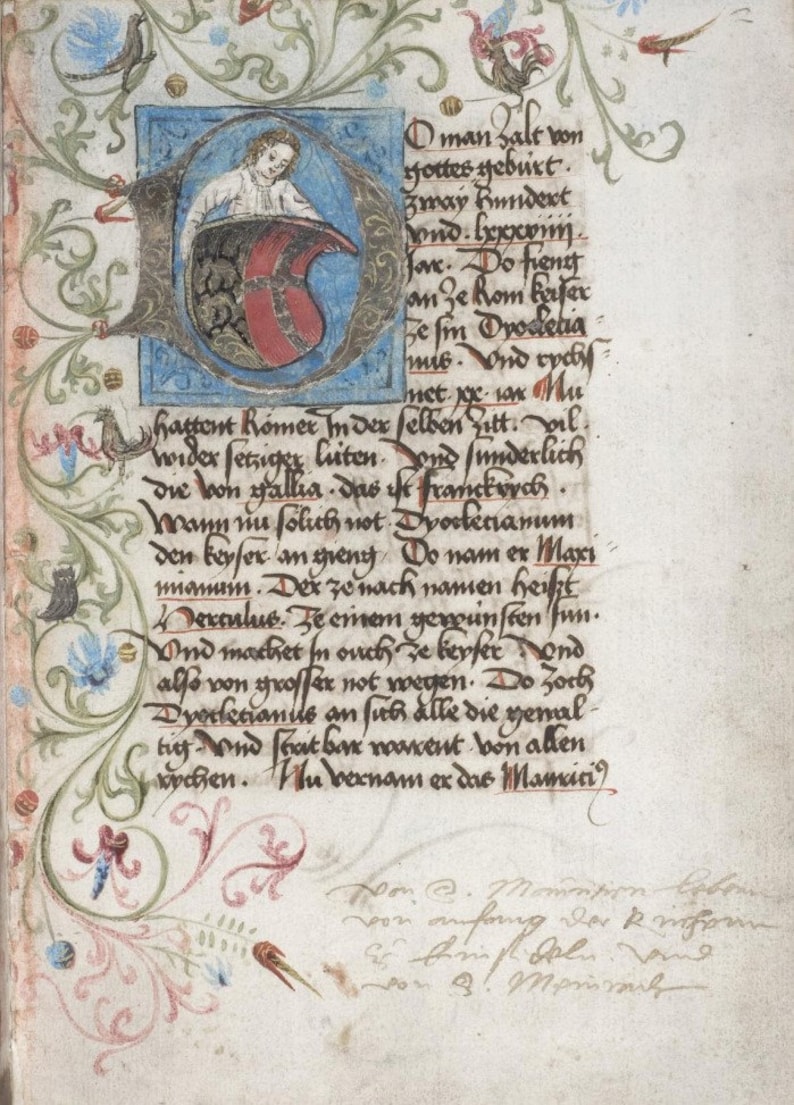 DO man zalt von
gottes gebúrt ·
zway hundert
vnd · lxxxviiij ·
Jar · Do fieng
an ze Rom keiser
ze sin Dyoclecia-
nus · Vnd rychs-
net · xx · iar Nu
hattent Rómer In der selben zitt · vil ·
wider setziger lúten · Vnd sunderlich
die von gallia · das ist franckrych ·
Wann nu sólich not · Dyoclecianum
den keyser · an gieng Do nam er Maxi-
mianum · Der ze nach namen heist
Herculus · Ze einem gewúnsten sun ·
Vnd machet in ouch ze keyser Vnd
also von grosser not wegen · Do zoch
Dyoclecianus an sich alle die gewal-
tig · Vnd strit bar warent · von allen
rychen · Nu vernam er das Mauriciꝰ
von S. leben
von anfang der
vnd
von S. Meinradt